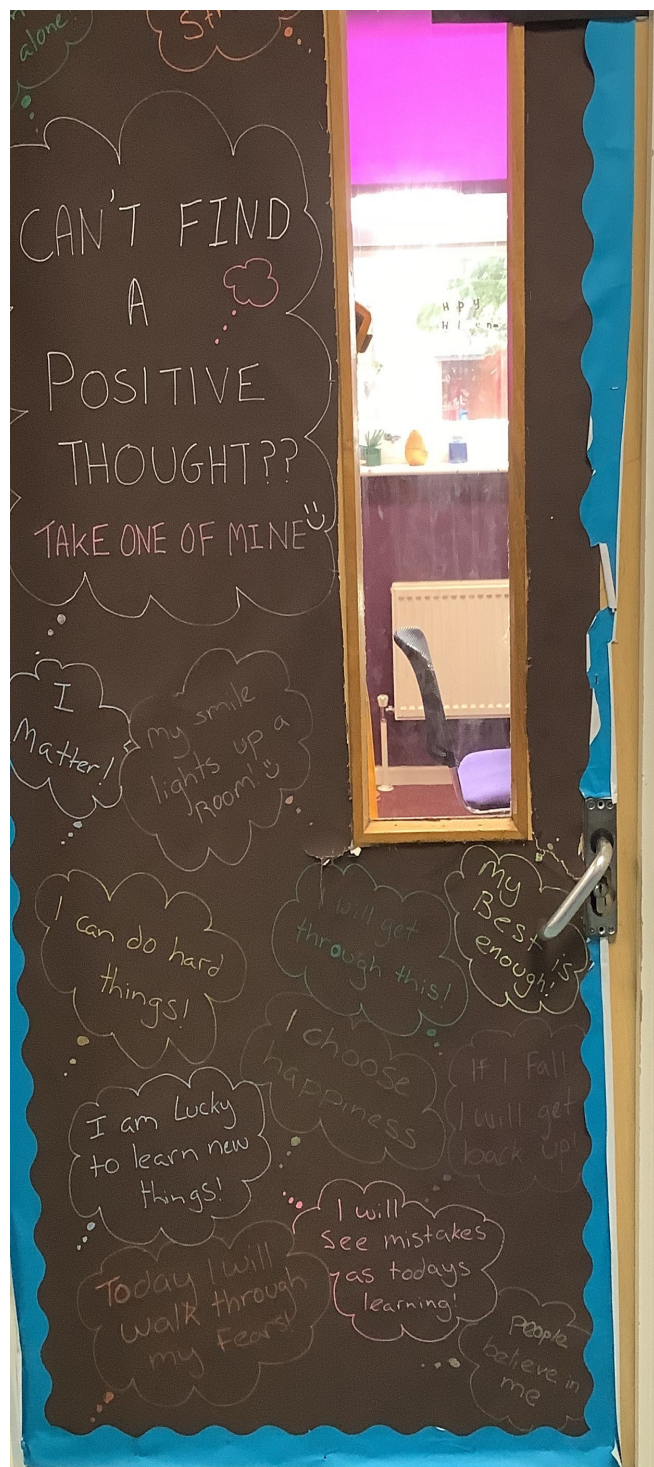 alone.
CAN'T FIND
A
POSITIVE
THOUGHT??
TAKE ONE OF MINE
I
Matter!
my smile
lights up a
ROOM!
I can do hard
things!
I will get
through this!
My
Best is
enough!
I choose
happiness
If I Fall
I will get
back up!
I am Lucky
to learn new
things!
I will
See mistakes
as todays
learning!
Today I will
walk through
my Fears!
People
believe in
me